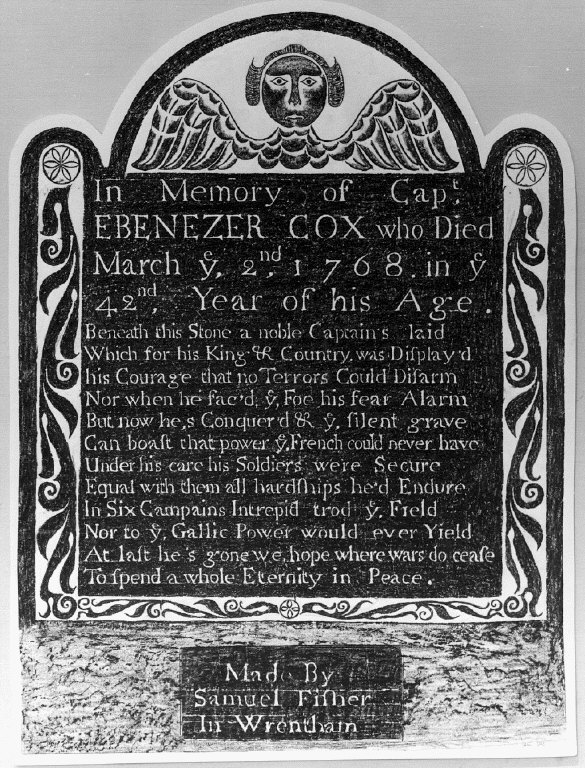 In Memory of Capt.
EBENEZER COX who Died
March ye. 2nd, 1768. in ye
42nd, Year of his Age.
Beneath this Stone a noble Captain's laid
Which for his King & Country, was Display'd
his Courage that no Terrors Could Diſarm
Nor when he fac'd; ye, Foe his fear Alarm
But now he,s Conquer'd & ye, ſilent grave
Can boaſt that power ye, French could never have
Under his care his Soldiers were Secure
Equal with them all hardſhips he'd Endure
In Six Campains Intrepid trod ye, Field
Nor to ye, Gallic Power would ever Yield
At laſt he's gone we, hope where wars do ceaſe
To ſpend a whole Eternity in Peace.
Made By
Samuel Fiſher
In Wrentham